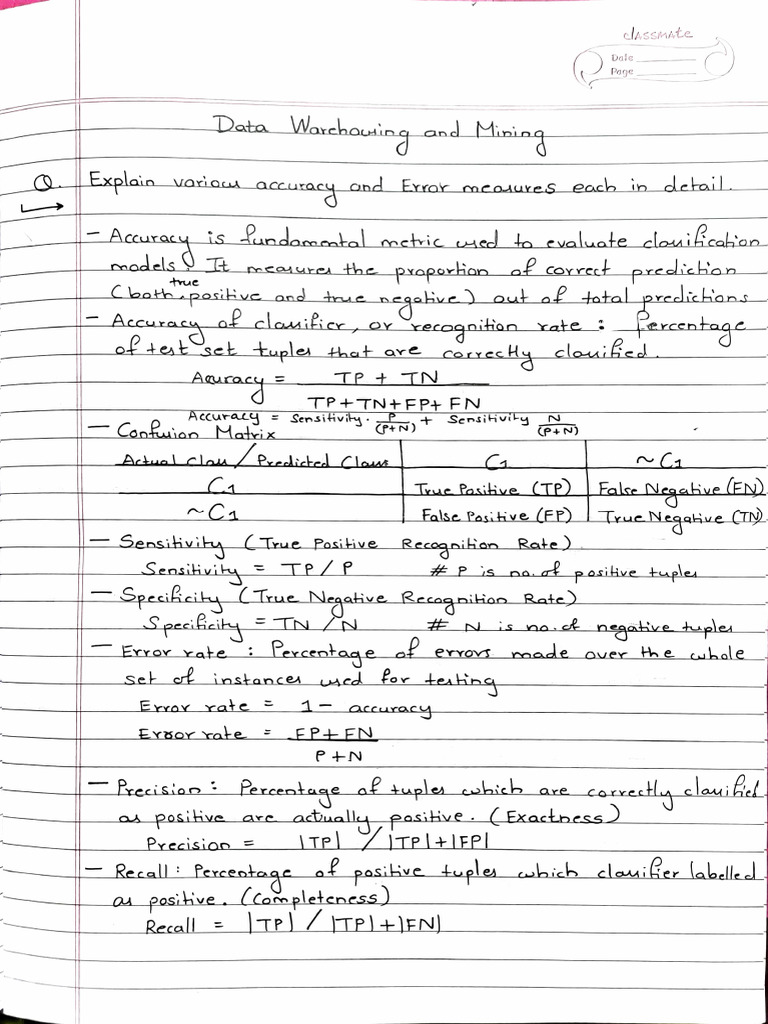 classmate
Date
Page
Data Warehousing and Mining
Q. Explain various accuracy and Error measures each in detail.
- Accuracy is fundamental metric used to evaluate classification
models. It measures the proportion of correct prediction
(both true positive and true negative) out of total predictions
- Accuracy of classifier, or recognition rate : Percentage
of test set tuples that are correctly classified.
Accuracy = TP + TN
TP+TN+FP+FN
Accuracy = Sensitivity · P/(P+N) + Sensitivity N/(P+N)
- Confusion Matrix
Actual Class / Predicted Class C1 ~C1
C1 True Positive (TP) False Negative (FN)
~C1 False Positive (FP) True Negative (TN)
- Sensitivity (True Positive Recognition Rate)
Sensitivity = TP / P # P is no. of positive tuples
- Specificity (True Negative Recognition Rate)
Specificity = TN / N # N is no. of negative tuples
- Error rate : Percentage of errors made over the whole
set of instances used for testing
Error rate = 1 - accuracy
Error rate = FP+FN
P+N
- Precision : Percentage of tuples which are correctly classified
as positive are actually positive. (Exactness)
Precision = |TP| / |TP|+|FP|
- Recall : Percentage of positive tuples which classifier labelled
as positive. (Completeness)
Recall = |TP| / |TP|+|FN|